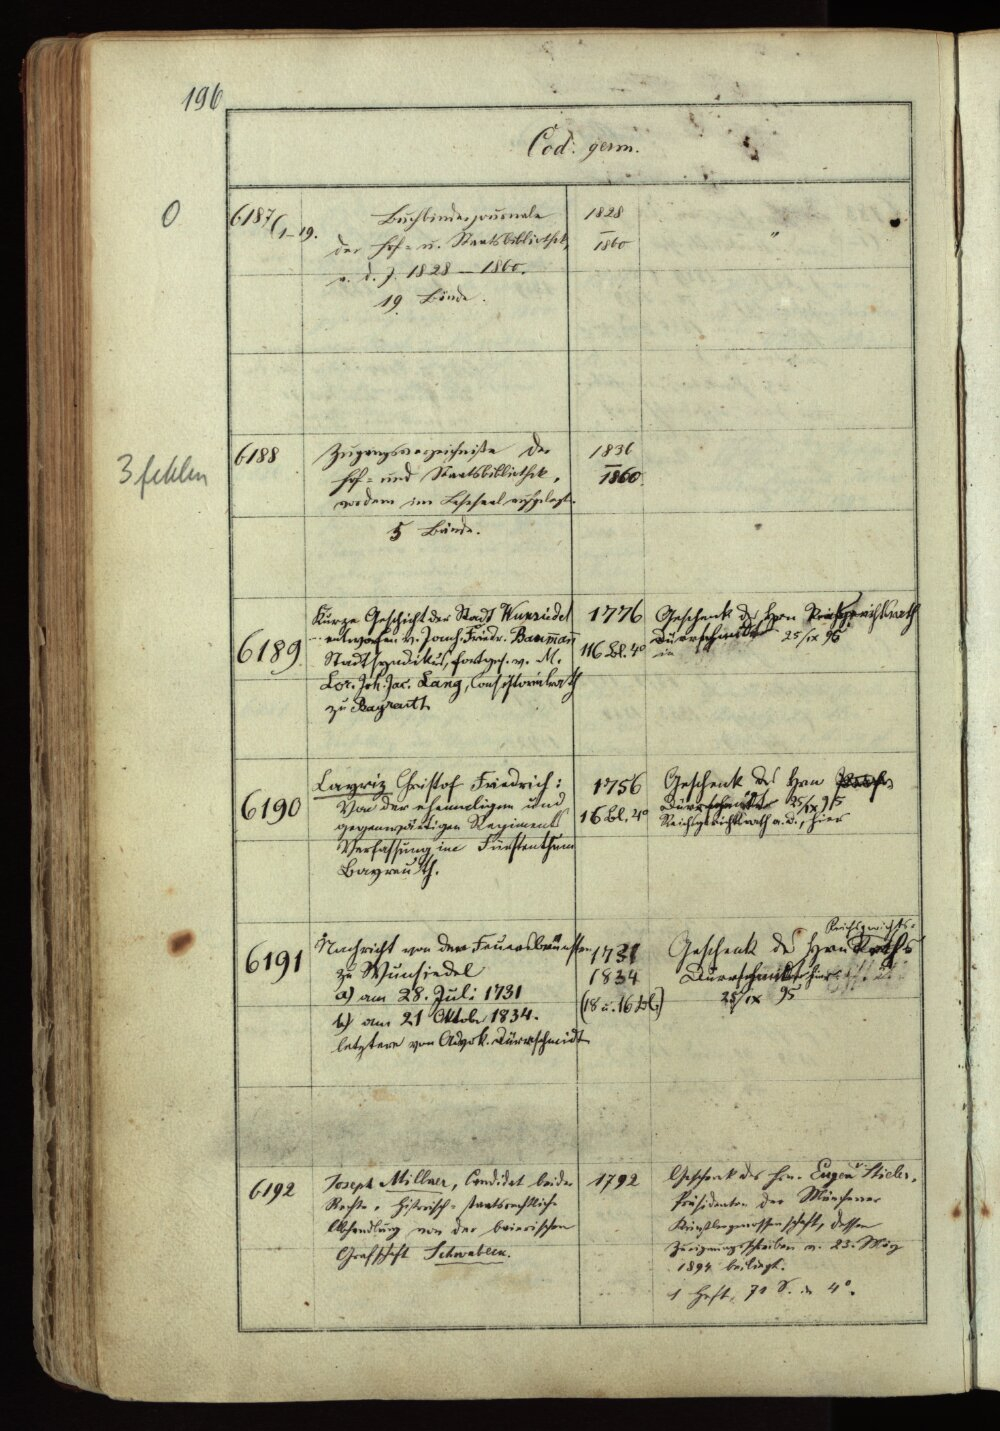 196
Cod. germ.
0
6187 (1–19.
Buchbinderjournale
der Hof- u. Staatsbibliothek,
v. d. J. 1828 – 1860.
19 Bände.
1828
–
1860
"
3 fehlen
6188
Zugangsverzeichniße der
Hof- und Staatsbibliothek,
vordem im Lesesaal aufgelegt.
5 Bände.
1836
–
1860
6189
Kurze Geschicht der Stadt Wunsidel
entworfen v. Joach. Friedr. Baumann
Stadtsyndikus, fortges. v. M.
Lor. Joh. Jac. Lang, Consistorialrath
zu Bayreuth
1776
116 Bl. 4°
Geschenk des Hrn Reichsgerichtsrath
Dürrschmidt 25/IX 95
in
6190
Layriz Christof Friedrich:
Von der ehemaligen und
gegenwärtigen Regiments
Verfassung im Fürstenthum
Bayreuth.
1756
16 Bl. 4°
Geschenk des Hrn
Dürrschmidt 25/IX 95
Reichsgerichtsrath a. D., hier
6191
Nachricht von den Feuersbrünsten
zu Wunsiedel
a) am 28. Juli 1731
b) am 21 Oktob. 1834.
letztere von Advok. Dürrschmidt
1731
1834
(18 u. 16 Bl.)
Reichsgerichts-
Geschenk des Hrn Raths
Dürrschmidt hier
25/IX 95
6192
Joseph Millner, Candidat beider
Rechte, Historisch-staatsrechtliche
Abhandlung von der baierischen
Grafschaft Schwabeck.
1792
Geschenk des Hrn. Eugen Stieler,
Präsidenten der Münchener
Künstlergenossenschaft, dessen
Zueignungsschreiben v. 23. März
1894 beiliegt.
1 Heft, 70 S. in 4°.